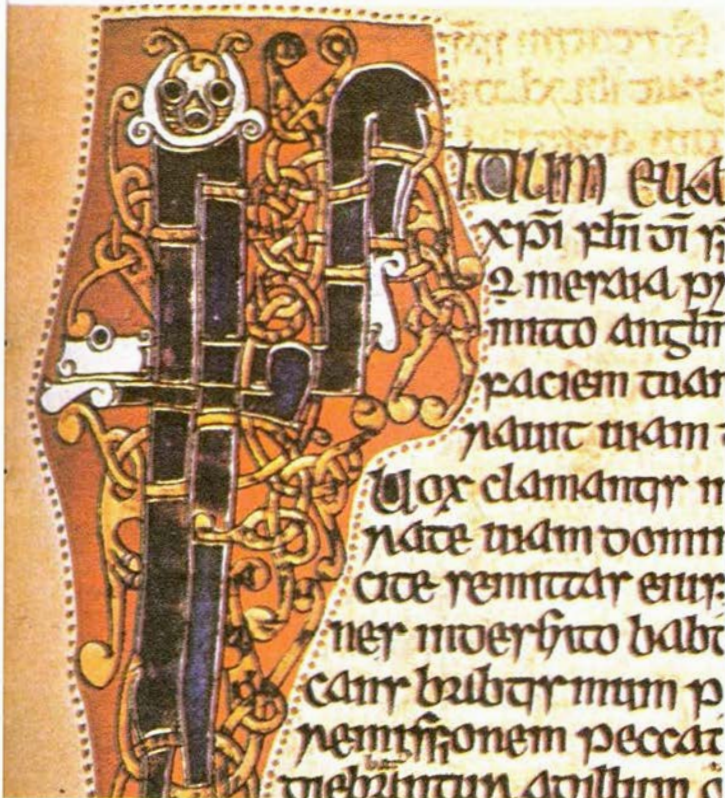 itium eua
xp̄i filii d̄i s
mitto anglm
faciem tuam
rauit uiam t
Uox clamantis in
rate uiam domin
cite semittas eius
nes indeserto babt
cans babtismum p
remissionem peccat
diebantur adillum o